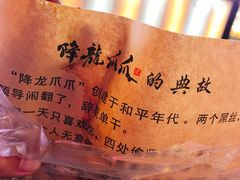 降龍爪爪的典故
"降龙爪爪"创建于和平年代。两个屌丝
领导闹翻了,辞
单干。
一天只喜欢
四处偷
人无意